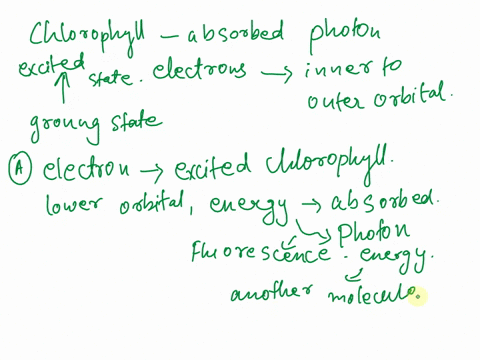 Chlorophyll – absorbed photon
excited state. electrons → inner to
outer orbital.
ground state
(A) electron → excited chlorophyll.
lower orbital, energy → absorbed.
Photon
Fluorescence. energy.
another molecule.